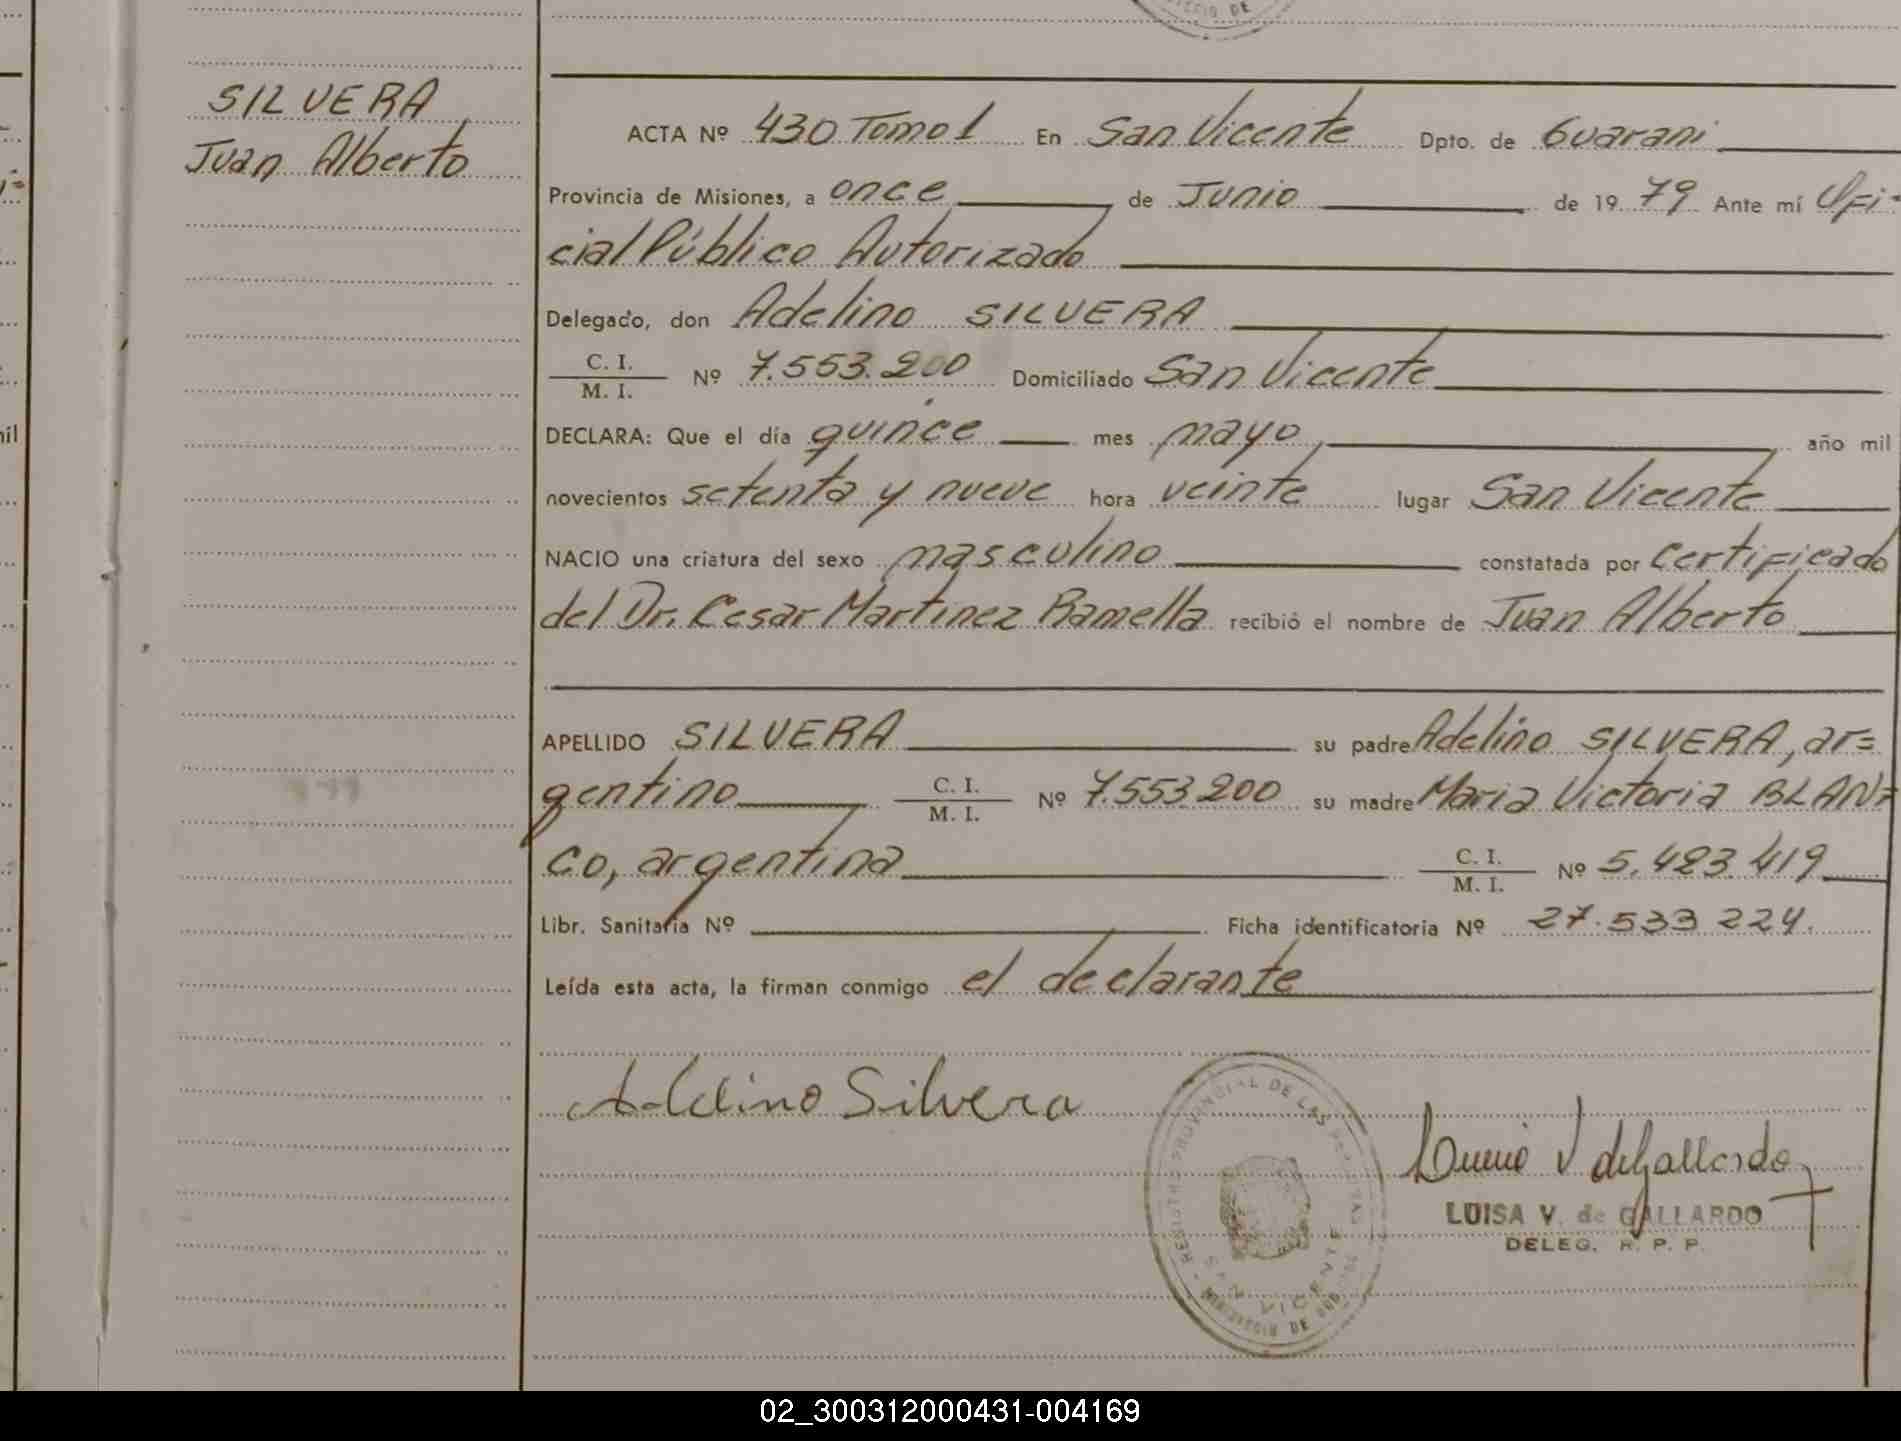 CIO DE
SILVERA
Juan Alberto
ACTA Nº 430 Tomo 1 En San Vicente Dpto. de Guarani
Provincia de Misiones, a once de Junio de 19 79 Ante mí Ofi-
cial Público Autorizado
Delegado, don Adelino SILVERA
C. I.
M. I.
Nº 7.553.200 Domiciliado San Vicente
DECLARA: Que el día quince mes mayo, año mil
novecientos setenta y nueve hora veinte lugar San Vicente
NACIO una criatura del sexo masculino constatada por certificado
del Dr. Cesar Martinez Ramella recibió el nombre de Juan Alberto
APELLIDO SILVERA su padre Adelino SILVERA, ar=
gentino C. I.
M. I.
Nº 7.553.200 su madre Maria Victoria BLAN=
CO, argentina C. I.
M. I.
Nº 5.423.419
Libr. Sanitaria Nº Ficha identificatoria Nº 27.533.224.
Leída esta acta, la firman conmigo el declarante
Adelino Silvera
REGISTRO PROVINCIAL DE LAS PERSONAS
SAN VICENTE
MINISTERIO DE GOBIERNO
V de Gallardo
LUISA V. de GALLARDO
DELEG. R. P. P.
02_300312000431-004169